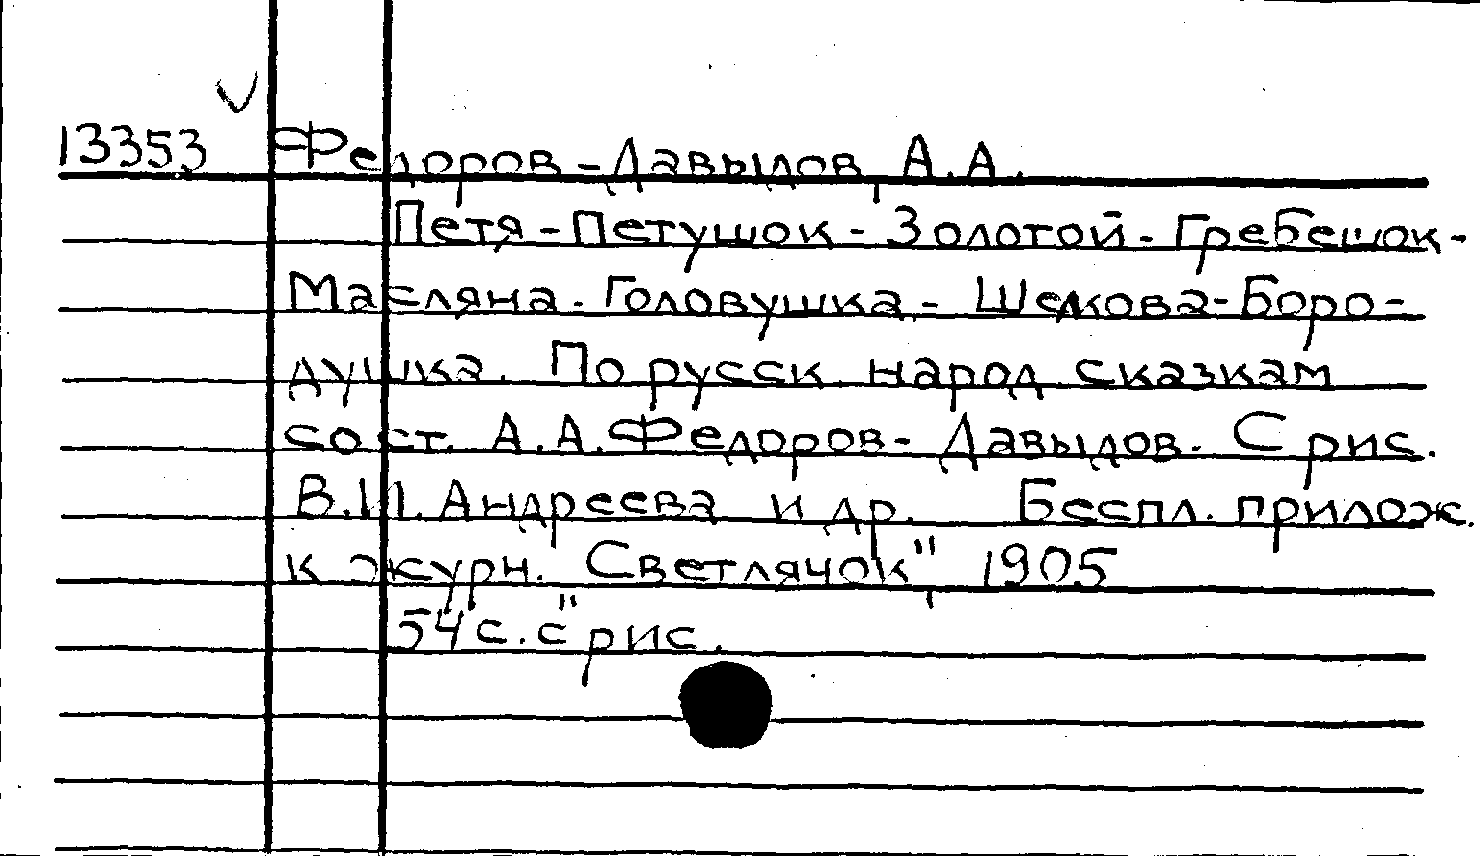 13353 Федоров-Давыдов, А.А.
Петя-Петушок-Золотой-Гребешок-
Масляна-Головушка-Шелкова-Боро-
душка. По русск. народ. сказкам
сост. А.А.Федоров-Давыдов. С рис.
В.И.Андреева и др. Беспл. прилож.
к журн. Светлячок", 1905
54 с. с рис.